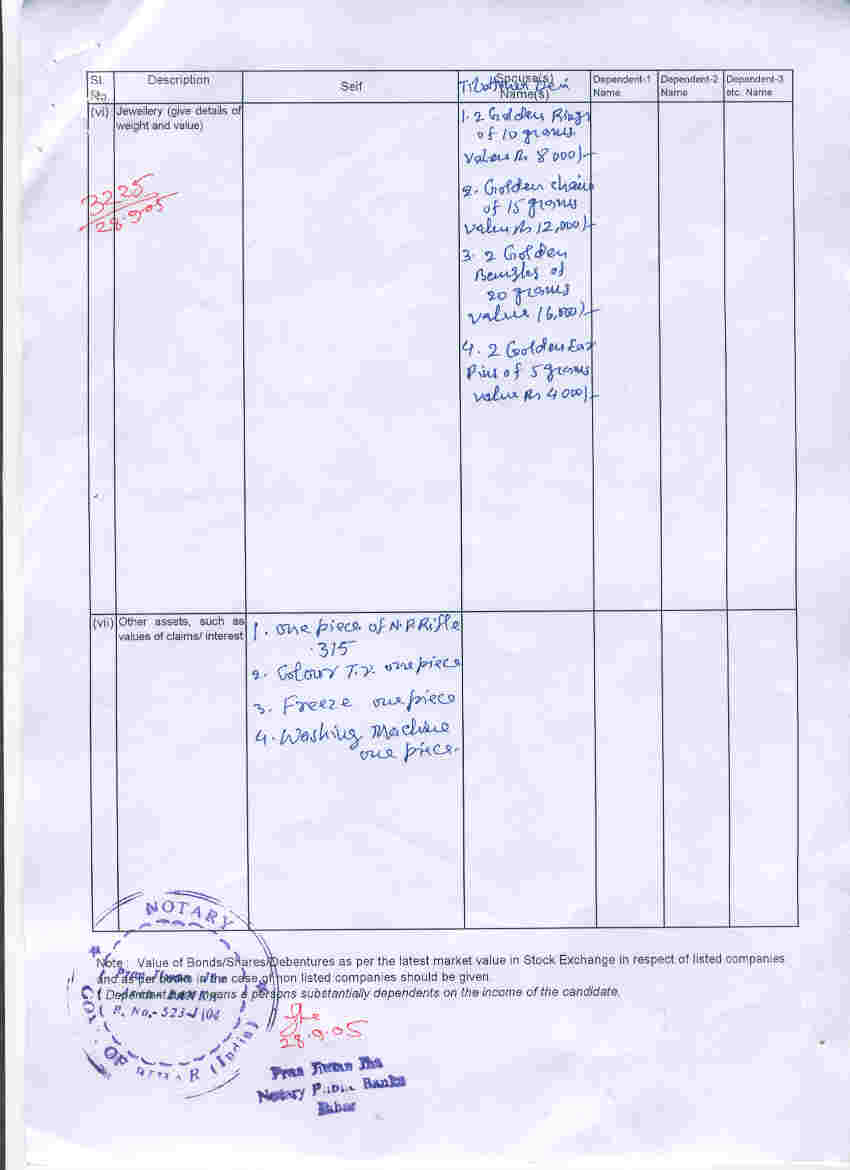 Sl. No.
Description
Self
Spouse(s) Name(s)
Dependent-1 Name
Dependent-2 Name
Dependent-3 etc. Name
(vi) Jewellery (give details of
weight and value)
3225
28.9.05
1. 2 Golden Rings
of 10 grams
Value Rs 8000/-
2. Golden chain
of 15 grams
value Rs 12,000/-
3. 2 Golden
Bengles of
20 grams
value 16,000/-
4. 2 Golden Ear
Pins of 5 grams
value Rs 4000/-
(vii) Other assets, such as
values of claims/ interest
1. one piece of N.P. Rifle
.315
2. Colour T.V. one piece
3. Freeze one piece
4. Washing Machine
one piece.
NOTARY
Note : Value of Bonds/Shares/Debentures as per the latest market value in Stock Exchange in respect of listed companies
and as per books in the case of non listed companies should be given.
Dependent means a persons substantially dependents on the income of the candidate.
28.9.05
Pran Jiwan Jha
Notary Public Banka
Bihar